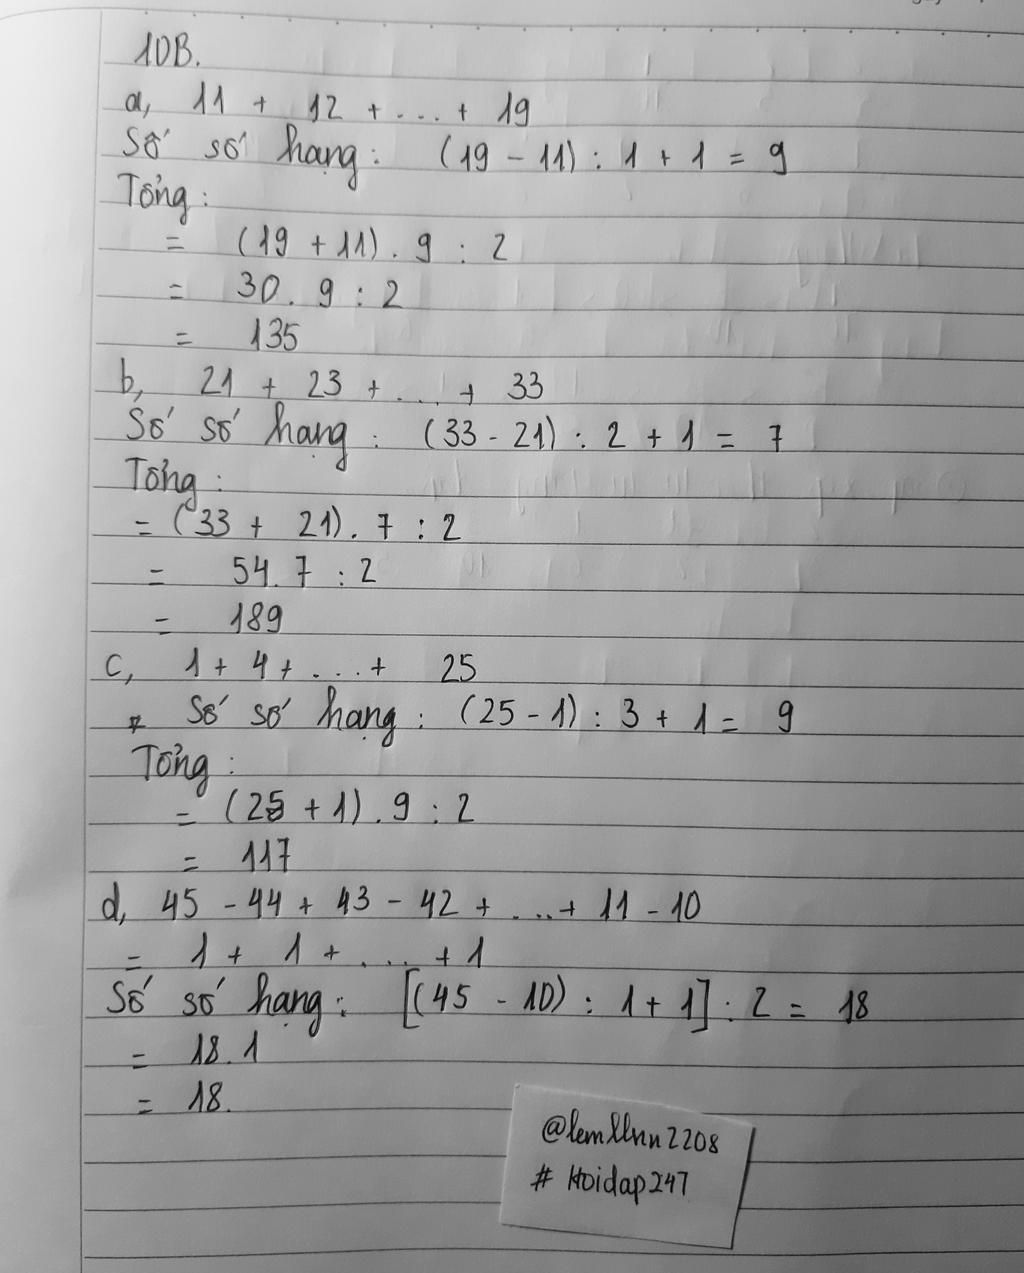 10B.
a, 11 + 12 + ... + 19
Số số hạng : (19 - 11) : 1 + 1 = 9
Tổng :
= (19 + 11) . 9 : 2
= 30 . 9 : 2
= 135
b, 21 + 23 + ... + 33
Số số hạng : (33 - 21) : 2 + 1 = 7
Tổng :
= (33 + 21) . 7 : 2
= 54 . 7 : 2
= 189
c, 1 + 4 + ... + 25
Số số hạng : (25 - 1) : 3 + 1 = 9
Tổng :
= (25 + 1) . 9 : 2
= 117
d, 45 - 44 + 43 - 42 + ... + 11 - 10
= 1 + 1 + ... + 1
Số số hạng : [(45 - 10) : 1 + 1] : 2 = 18
= 18 . 1
= 18.
# Hoidap247